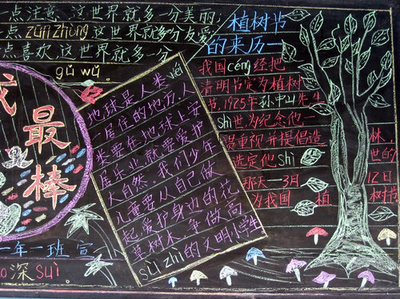 一点注意,这世界就多一分美丽;
一点zūn zhòng 这世界就多一分友爱
点喜欢,这世界就多一分
gǔ wǔ
最棒
年一班宣
深suì
地球是人类
居住的地方,人
类要在地球上安
居乐业就要爱护
大自然。我们少年
儿童要从自己做
起爱护身边的花
草树木,争做高
sù zhì的文明小学生
植树节
的来历
我国céng经把
清明节定为植树
节,1925年孙中山先生
shì世,为纪念他一
贯重视并提倡造 林,
选定他shì 世的
那天—3月 12日
为我国 植 树节